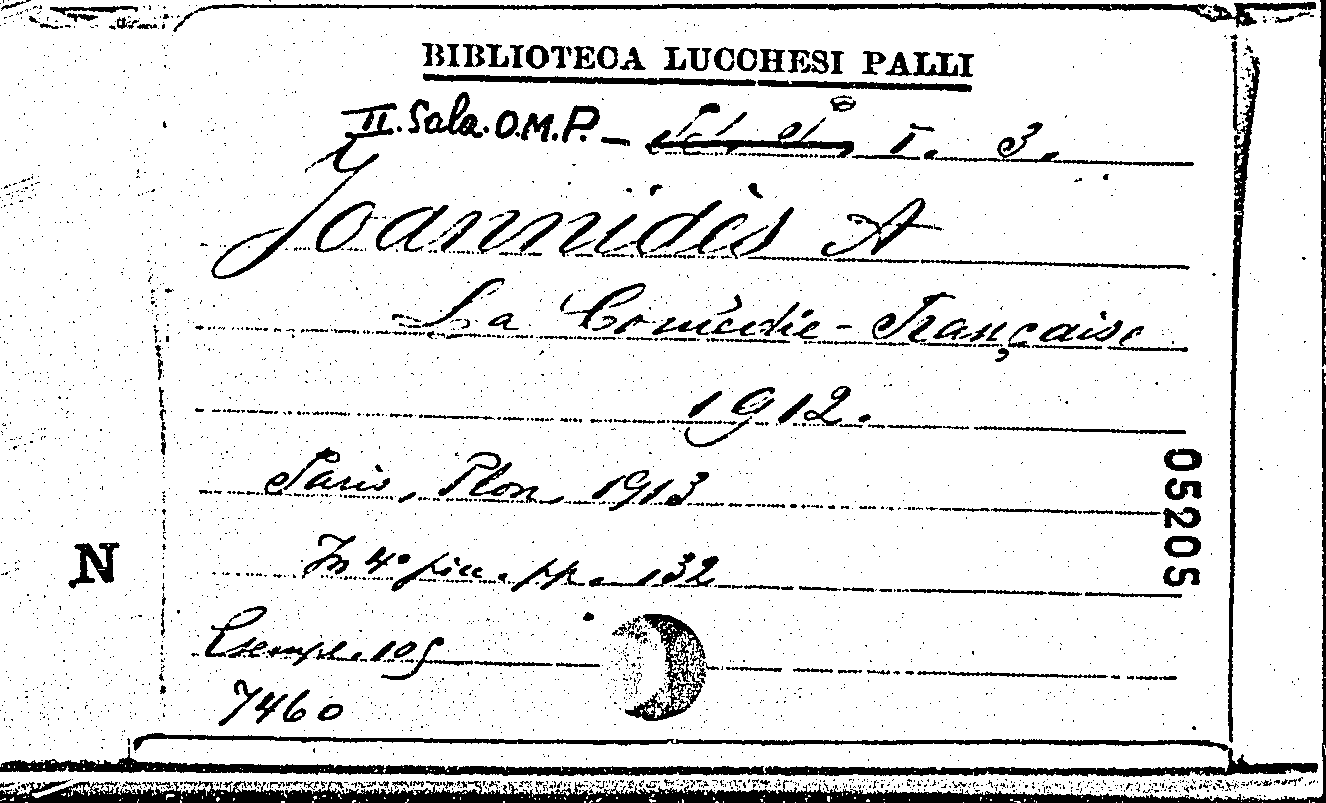 BIBLIOTECA LUCCHESI PALLI
II. Sala. O.M.P. – I. 3.
Joannidès A
La Comédie-Française
1912.
Paris, Plon, 1913
In 4° picc. pp. 132
Esempl. 105
7460
N
05205